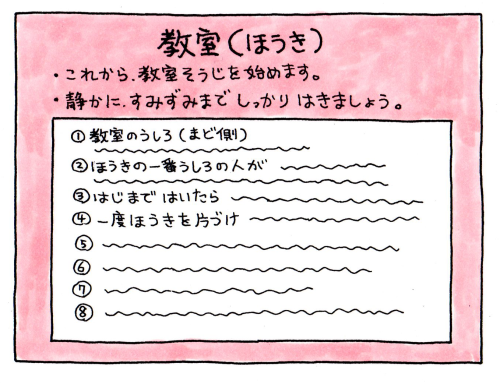 教室(ほうき)
・これから、教室そうじを始めます。
・静かに、すみずみまで しっかり はきましょう。
①教室のうしろ(まど側)
②ほうきの一番うしろの人が
③はじまで はいたら
④一度ほうきを片づけ
⑤
⑥
⑦
⑧